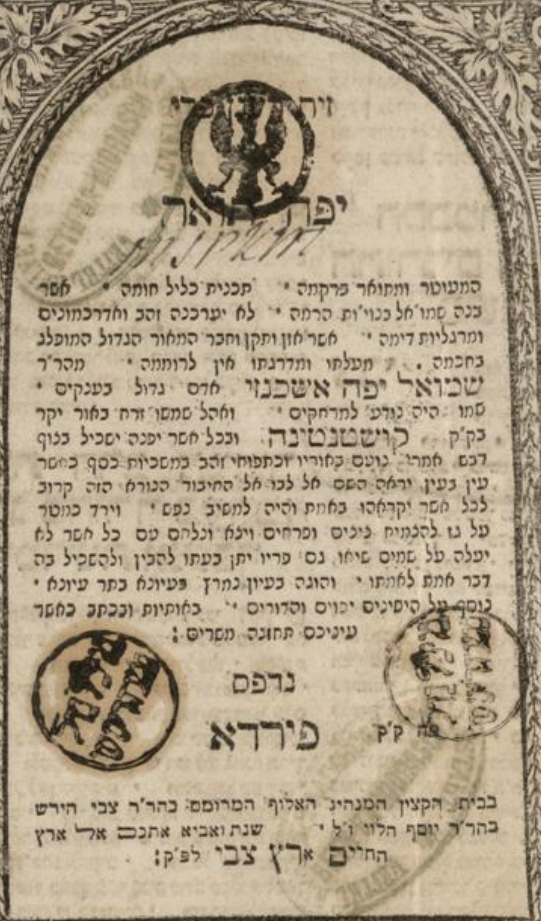 זית רענן פרי
יפה תואר
המעוטר ומתואר ברקמה · תבנית כליל חומה · אשר
בנה שמואל בנויות הרמה · לא יערכנה זהב ואדרכמונים
ומרגליות דימה · אשר אזן ותקן וחבר המאור הגדול המופלג
בחכמה · מעלתו ומדרגתו אין לרוממה · מהר״ר
שמואל יפה אשכנזי אדם גדול בענקים ·
שמו היה נודע למרחקים · ואהל שמשו זרח באור יקר
בק״ק קושטנטינה ובכל אשר יפנה ישכיל בצוף
דבש אמרי נועם באוריו וכתפוחי זהב במשכיות כסף כאשר
עין בעין יראה השם אל לבו אל החיבור הנורא הזה קרוב
לכל אשר יקראהו באמת והיה למשיב נפש · וירד כמטר
על גז להצמיח ציצים ופרחים ויצא ונלחם עם כל אשר לא
יעלה על שמים שיאו, גם פריו יתן בעתו להבין ולהשכיל בה
דבר אמת לאמתו · והוגה בעיון נמרץ בעיונא בתר עיונא ·
נוסף על הישינים יפוים והדורים · באותיות ובכתב כאשר
עיניכם תחזנה משרים :
נדפס
פה ק״ק פירדא
בבית הקצין המנהיג האלוף המרומם כהר״ר צבי הירש
בהר״ר יוסף הלוי ז״ל · שנת ואביא אתכם אל ארץ
החיים ארץ צבי לפ״ק :